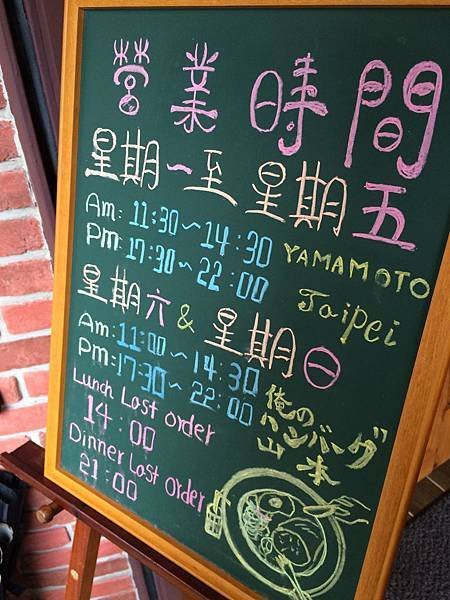 營業時間
星期一至星期五
Am: 11:30~14:30
pm: 17:30~22:00
YAMAMOTO
Taipei
星期六 & 星期日
Am: 11:00~14:30
pm: 17:30~22:00
Lunch Last order
14:00
Dinner Last order
21:00
俺の
ハンバーグ
山本